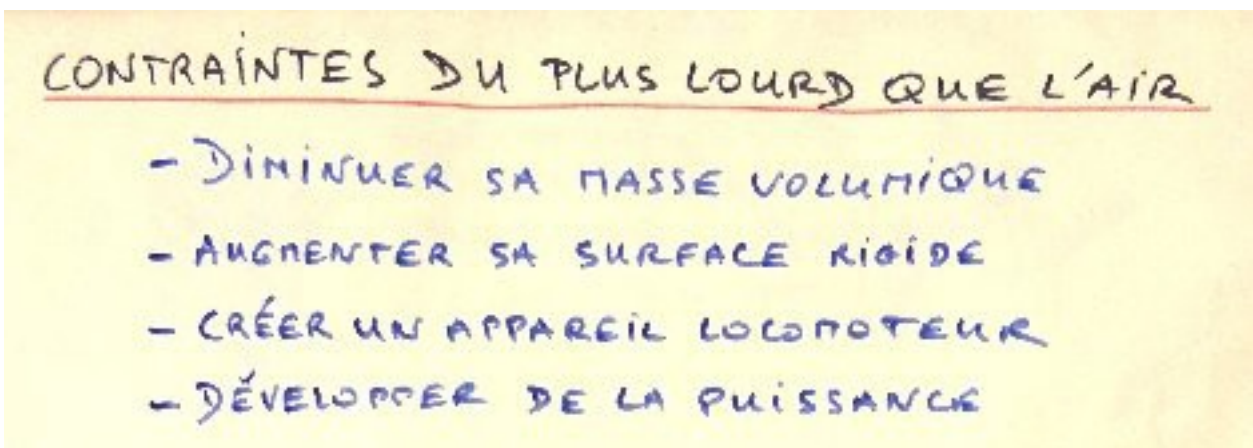 CONTRAINTES DU PLUS LOURD QUE L'AIR
- DIMINUER SA MASSE VOLUMIQUE
- AUGMENTER SA SURFACE RIGIDE
- CRÉER UN APPAREIL LOCOMOTEUR
- DÉVELOPPER DE LA PUISSANCE